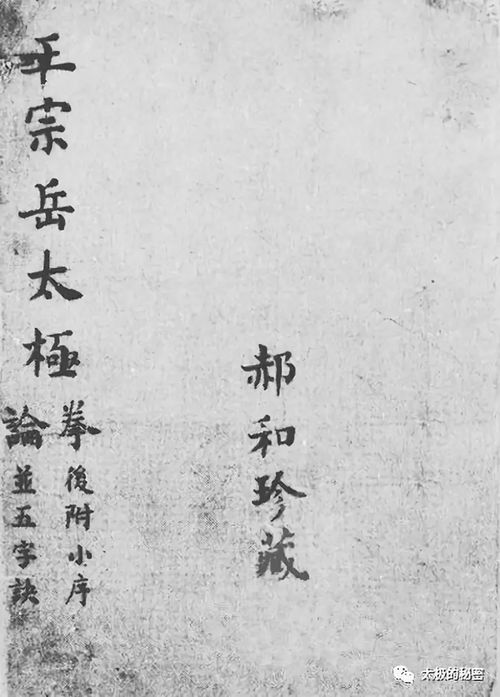 郝和珍藏
王宗岳太極
拳後附小序
論並五字訣
太极的秘密